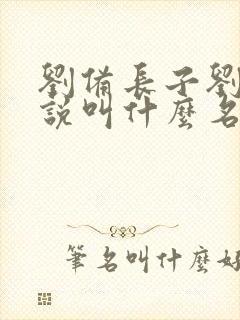 劉備長子劉
說叫什麼名
筆名叫什麼好